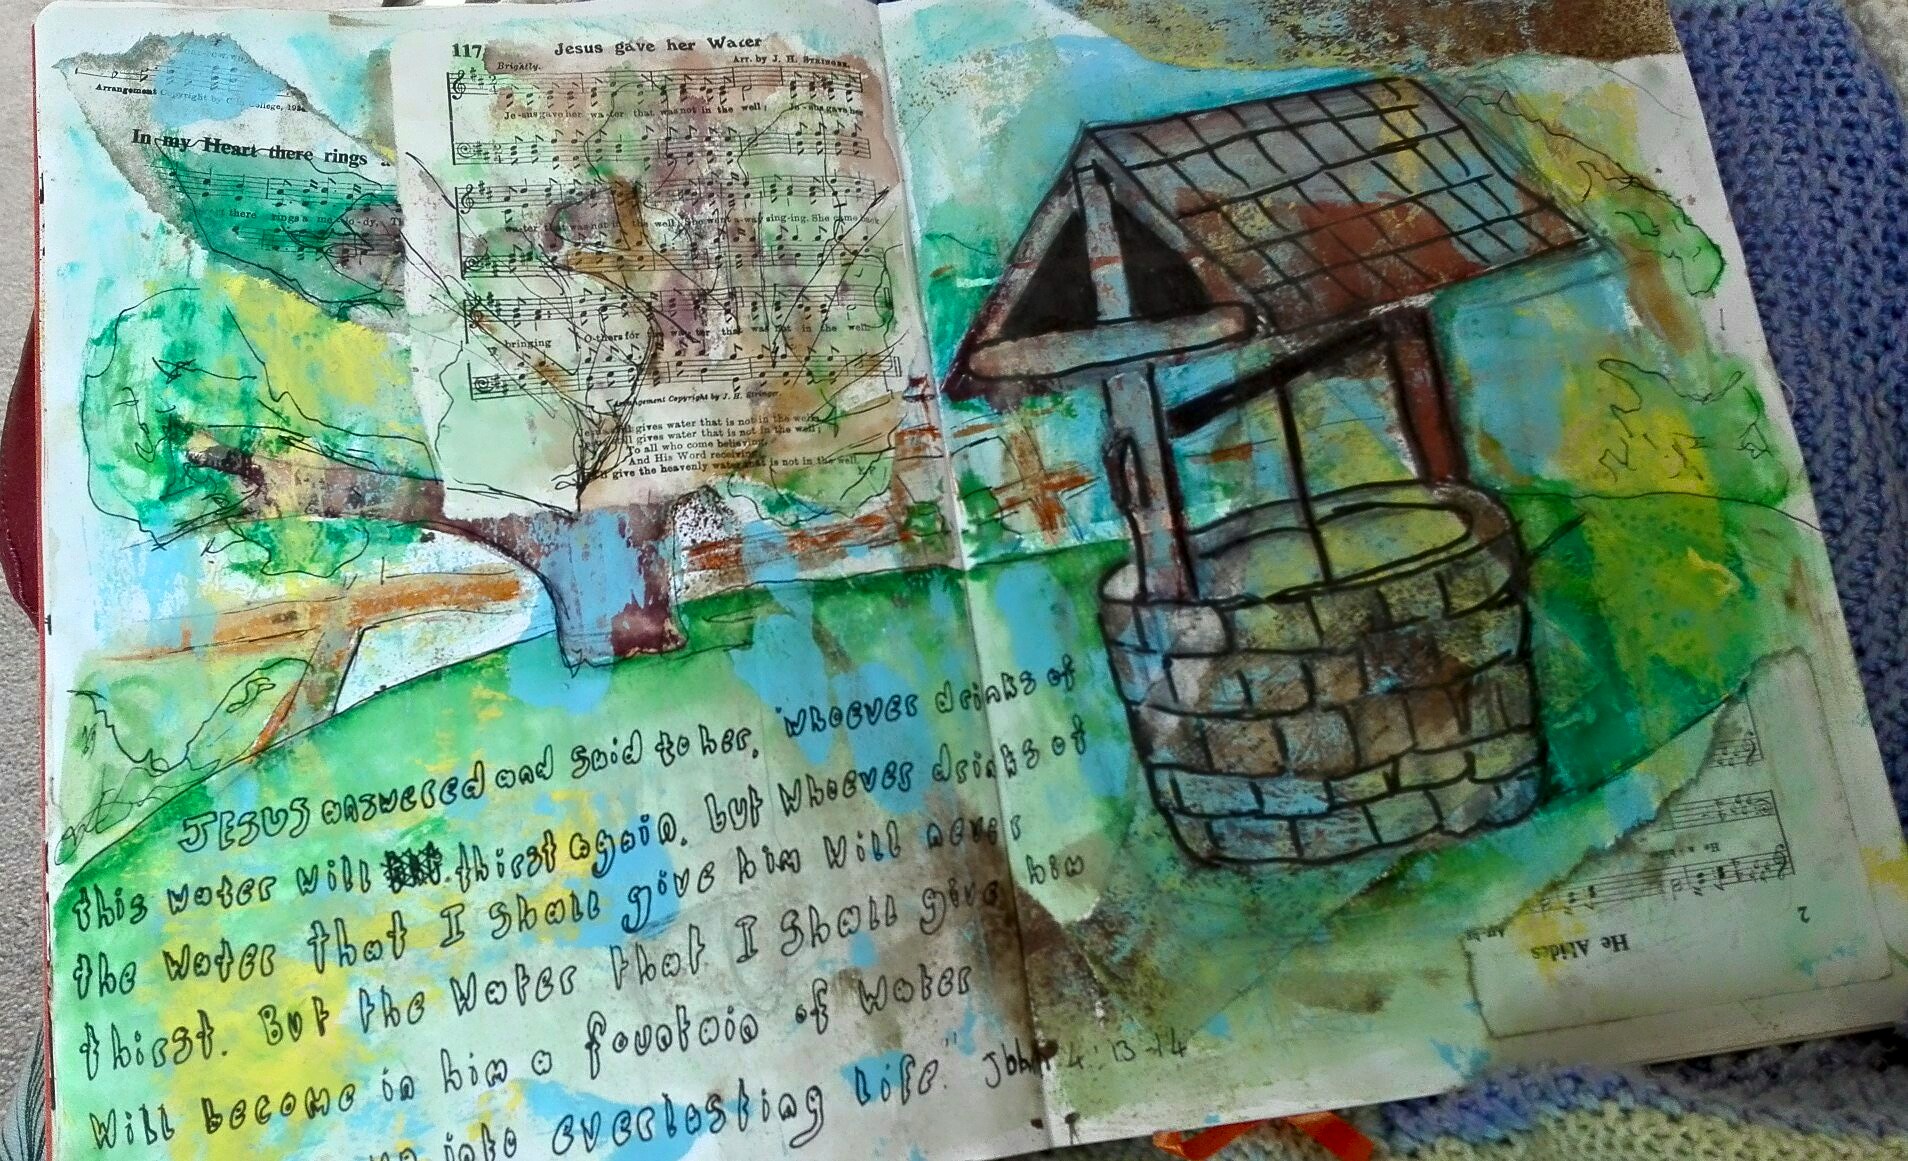 Arrangement Copyright by C
In my Heart there rings ..
there rings a me-lo-dy,
117
Jesus gave her Water
Brightly.
Arr. by J. H. Stringer.
Je-sus gave her wa-ter that was not in the well; Je-sus gave her
water that was not in the well; She went a-way sing-ing, She came back
bringing Others for the wa-ter that was not in the well.
Arrangement Copyright by J. H. Stringer.
gives water that is not in the well;
gives water that is not in the well;
To all who come believing,
And His Word receiving,
give the heavenly water that is not in the well.
JESUS answered and said to her, "whoever drinks of
this water will thirst again, but whoever drinks of
the water that I shall give him will never
thirst. But the water that I shall give him
will become in him a fountain of water
into everlasting life." John 4: 13-14
He Abides
2